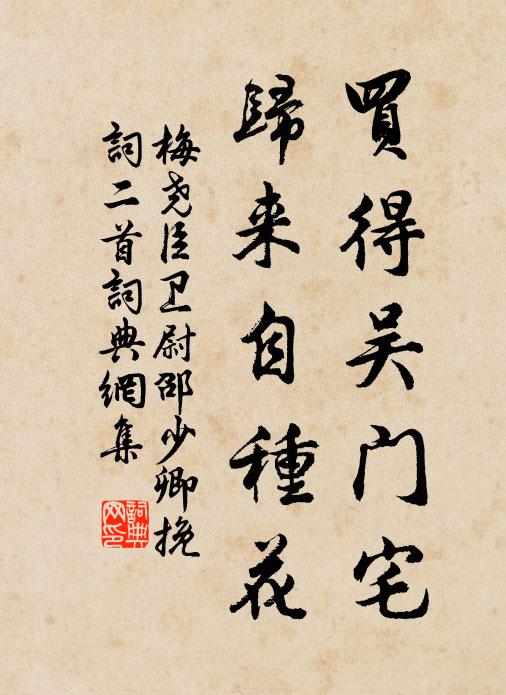 買得吴门宅
歸来自種花
梅尧臣卫尉邵少卿挽
詞二首詞典網集
詞典
网印